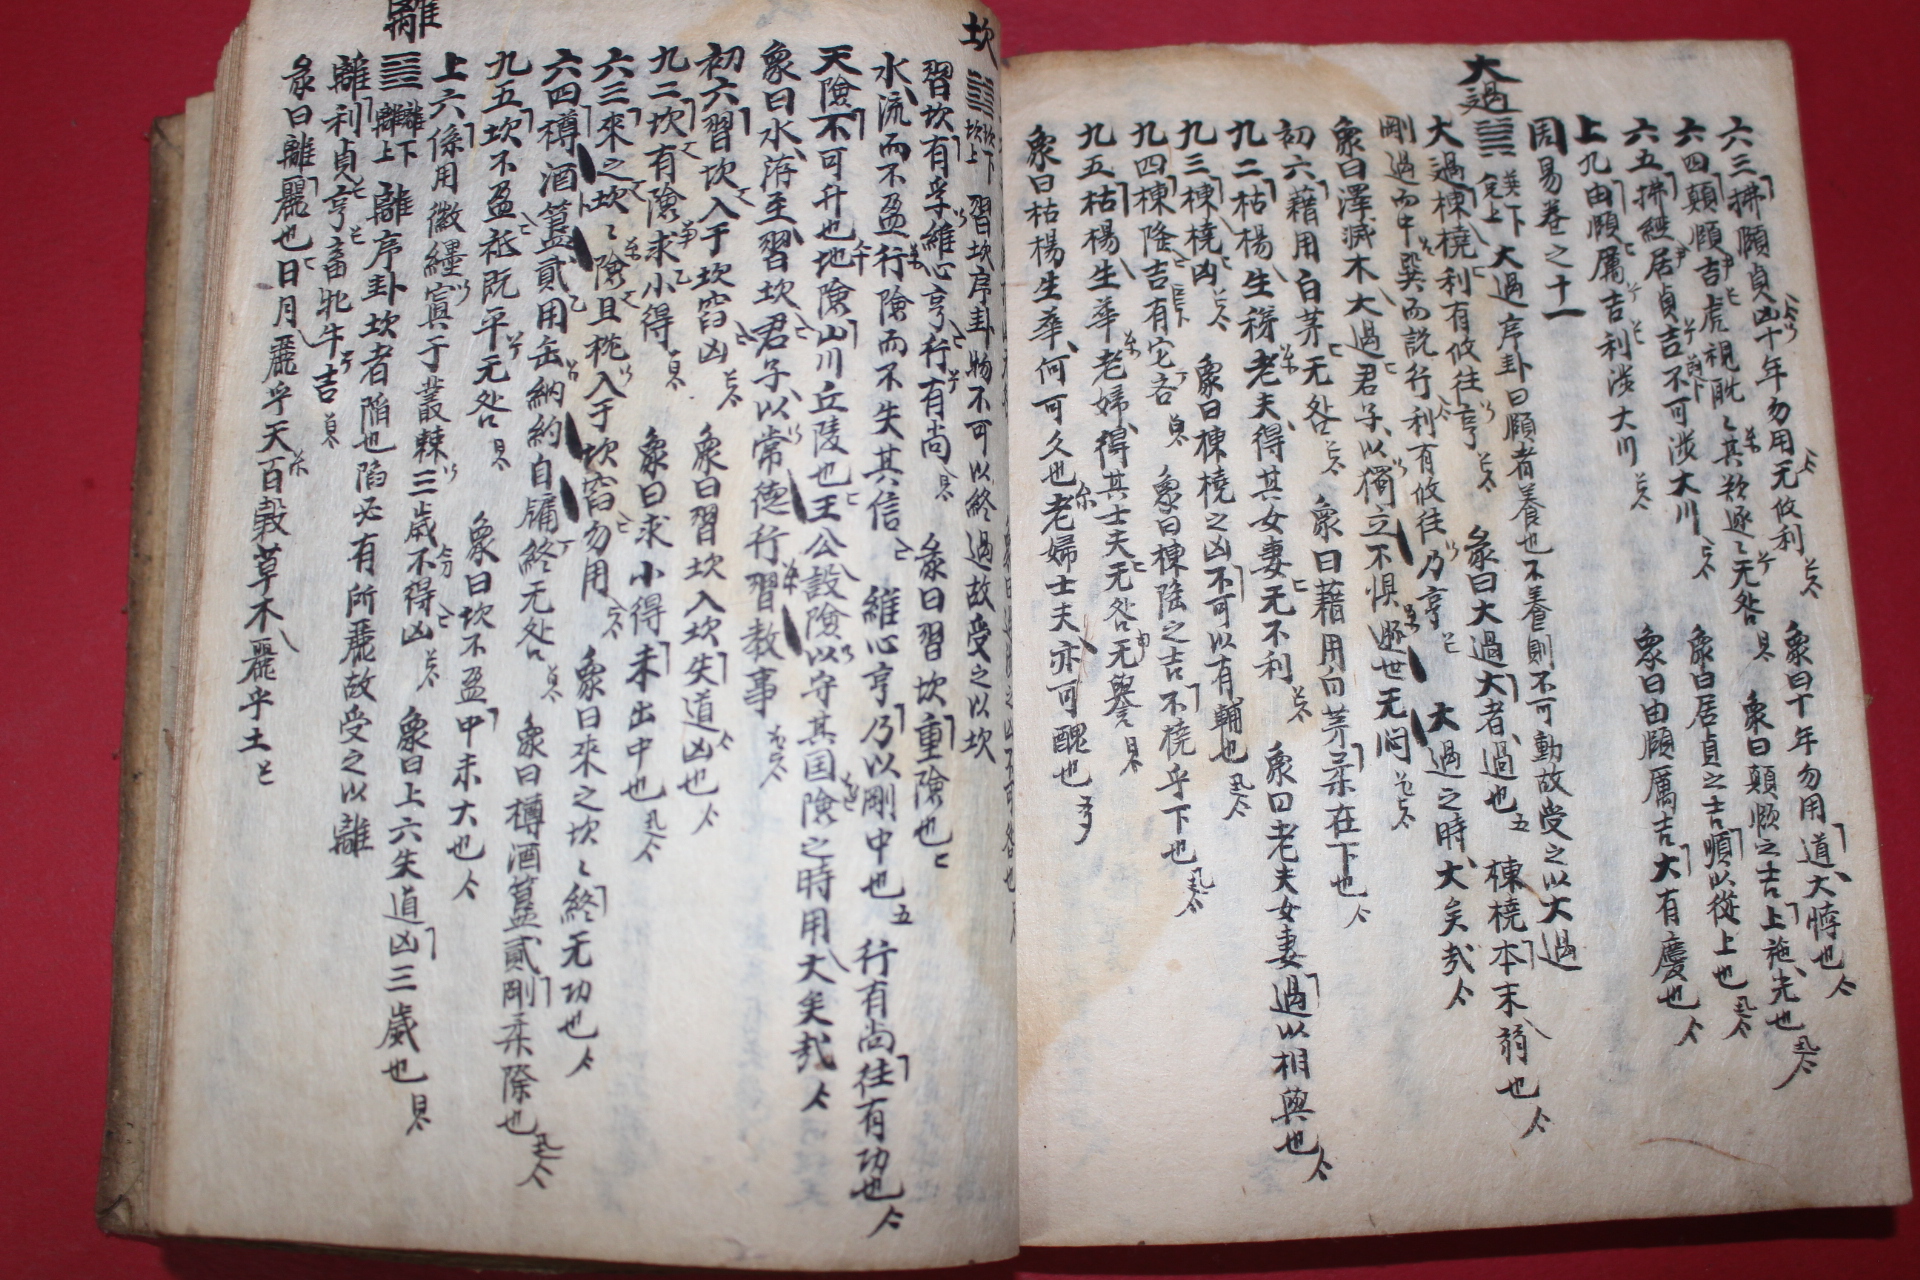 六三拂頤貞凶十年勿用无攸利 象曰十年勿用道大悖也
六四顛頤吉虎視眈々其欲逐々无咎 象曰顛頤之吉上施光也
六五拂經居貞吉不可涉大川 象曰居貞之吉順以從上也
上九由頤厲吉利涉大川 象曰由頤厲吉大有慶也
周易卷之十一
大過
巽下兌上 大過序卦曰頤者養也不養則不可動故受之以大過
大過棟橈利有攸往亨 彖曰大過大者過也 棟橈本末弱也
剛過而中巽而説行利有攸往乃亨 大過之時大矣哉
象曰澤滅木大過君子以獨立不惧遯世无悶
初六藉用白茅无咎 象曰藉用白茅柔在下也
九二枯楊生稊老夫得其女妻无不利 象曰老夫女妻過以相與也
九三棟橈凶 象曰棟橈之凶不可以有輔也
九四棟隆吉有它吝 象曰棟隆之吉不橈乎下也
九五枯楊生華老婦得其士夫无咎无譽
象曰枯楊生華何可久也老婦士夫亦可醜也
坎
坎下坎上 習坎序卦物不可以終過故受之以坎
習坎有孚維心亨行有尚 彖曰習坎重險也
水流而不盈行險而不失其信 維心亨乃以剛中也 行有尚往有功也
天險不可升也地險山川丘陵也王公設險以守其国險之時用大矣哉
象曰水洊至習坎君子以常德行習教事
初六習坎入于坎窞凶 象曰習坎入坎失道凶也
九二坎有險求小得 象曰求小得未出中也
六三來之坎々險且枕入于坎窞勿用 象曰來之坎々終无功也
六四樽酒簋貳用缶納約自牖終无咎 象曰樽酒簋貳剛柔際也
九五坎不盈祗既平无咎 象曰坎不盈中未大也
上六係用徽纆寘于叢棘三歲不得凶 象曰上六失道凶三歲也
離
離下離上 離序卦坎者陷也陷必有所麗故受之以離
離利貞亨畜牝牛吉
彖曰離麗也日月麗乎天百穀草木麗乎土